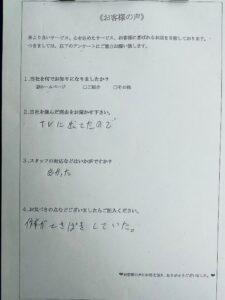 《お客様の声》
より良いサービス、心を込めたサービス、お客様に喜ばれるお店を目指しております。
つきましては、以下のアンケートにご協力お願い致します。
1.当社を何でお知りになりましたか?
☑ホームページ □ご紹介 □その他
2.当社を選んだ理由をお聞かせ下さい。
TVに出てたので
3.スタッフの対応などはいかがですか?
良かった
4.お気づきの点などございましたらご記入ください。
作業がてきぱきしていた。
お客様の声にお答え頂き、ありがとうございました。